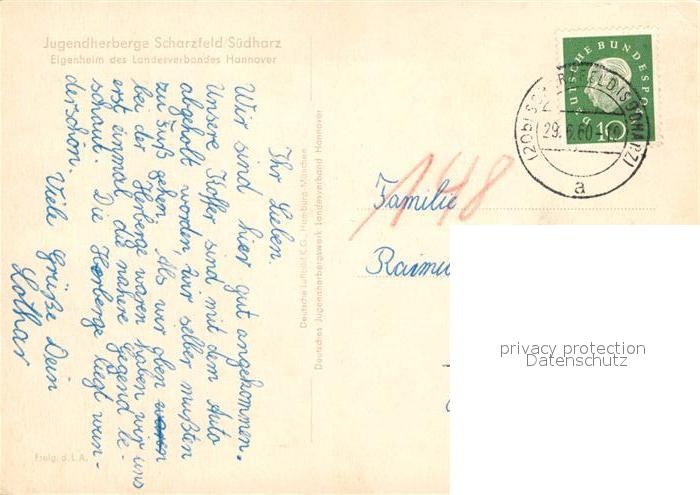 Jugendherberge Scharzfeld/Südharz
Eigenheim des Landesverbandes Hannover
Ihr Lieben.
Wir sind hier gut angekommen.
Unsere Koffer sind mit dem Auto
abgeholt worden, wir selber mußten
zu Fuß gehen. Als wir oben waren
bei der Herberge waren haben wir uns
erst einmal die nähere Gegend be-
schaut. Die Herberge liegt wun-
derschön. Viele Grüße Dein
Lothar
Freig. d. L.A.
Deutsche Luftbild K.G., Hamburg-München
Deutsches Jugendherbergswerk Landesverband Hannover
DEUTSCHE BUNDESPO
10
(20b) SCHARZFELD (SÜDHARZ)
29.6.60
a
148
Familie
Raimu
privacy protection
Datenschutz